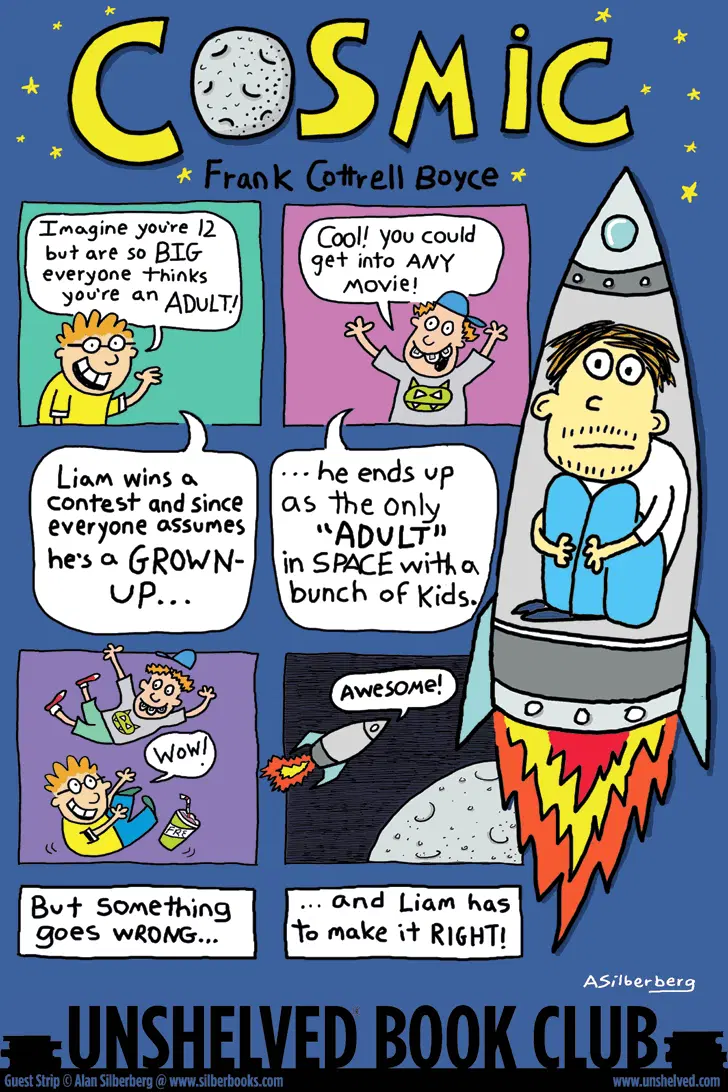 COSMiC
Frank Cottrell Boyce
Imagine you're 12
but are so BIG
everyone thinks
you're an ADULT!
Cool! you could
get into ANY
movie!
Liam wins a
contest and since
everyone assumes
he's a GROWN-
UP...
...he ends up
as the only
"ADULT"
in SPACE with a
bunch of kids.
WOW!
FRE
AWESOME!
But something
goes WRONG...
...and Liam has
to make it RIGHT!
ASilberberg
UNSHELVED BOOK CLUB
Guest Strip © Alan Silberberg @ www.silberbooks.com
www.unshelved.com